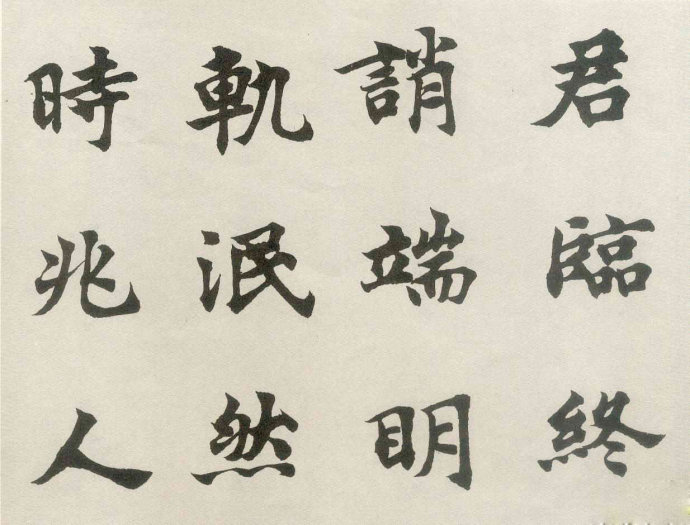 君臨終
誚端明
軌泯然
時兆人